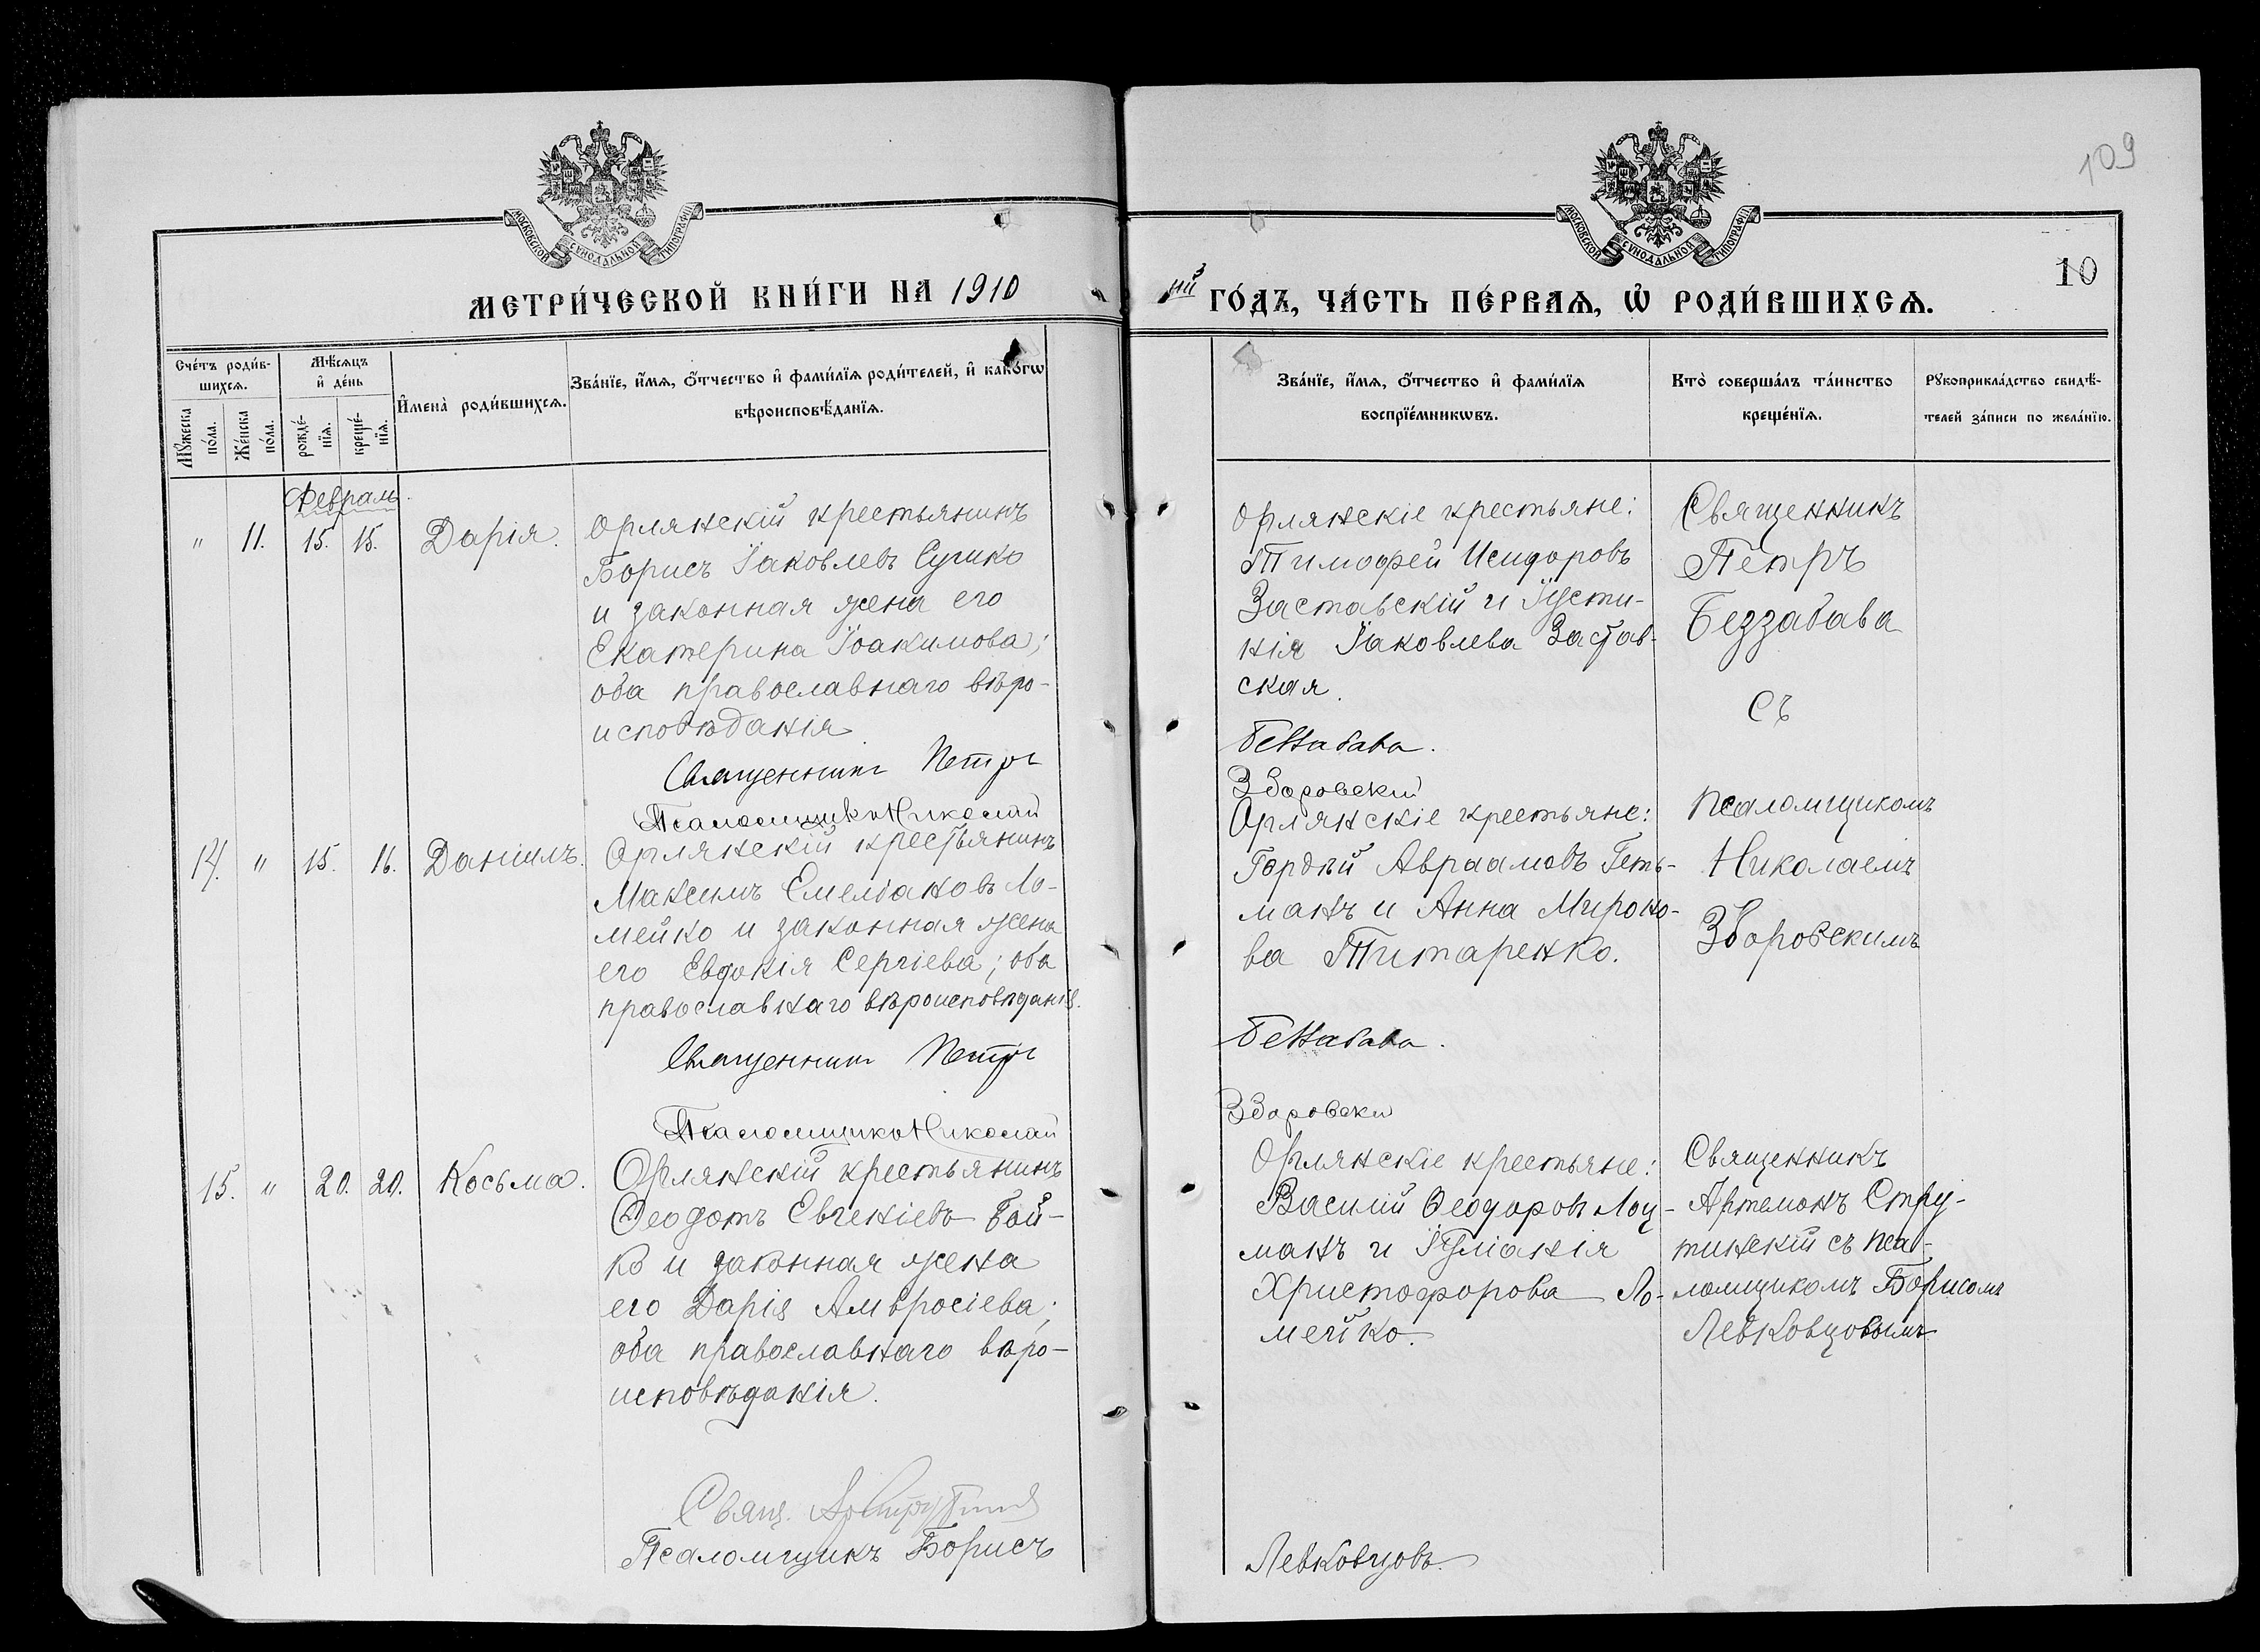 109
МОСКОВСКОЙ СѴНОДАЛЬНОЙ ТИПОГРАФІИ
МОСКОВСКОЙ СѴНОДАЛЬНОЙ ТИПОГРАФІИ
10
МЕТРИ́ЧЕСКОЙ КНИ́ГИ НА 1910
ый ГО́ДЪ, ЧА́СТЬ ПЕ́РВАѦ, Ѡ҆ РОДИ́ВШИХСѦ.
Сче́тъ роди́в-
шихсѧ.
Мꙋ́жеска по́ла.
Же́нска по́ла.
Мѣ́сѧцъ
и҆ де́нь
рожде́-
нїѧ.
креще́-
нїѧ.
И҆мена̀ роди́вшихсѧ.
Зва́нїе, и҆́мѧ, ѻ҆́тчество и҆ фами́лїѧ роди́телей, и҆ како́гѡ
вѣроисповѣ́данїѧ.
Зва́нїе, и҆́мѧ, ѻ҆́тчество и҆ фами́лїѧ
воспрїе́мникѡвъ.
Кто̀ соверша́лъ та́инство
креще́нїѧ.
Рꙋкоприкла́дство свидѣ́-
телей за́писи по жела́нїю.
Февраль.
" 11. 15. 15. Дарія.
Орлянскій крестьянинъ
Борисъ Іаковлевъ Сушко
и законная жена его
Екатерина Іоакимова;
оба православнаго вѣро-
исповѣданія
Священникъ Петръ
Псаломщикъ Николай
Орлянскіе крестьяне:
Тимофей Исидоровъ
Заставскій и Іусти-
нія Іаковлева Застав-
ская.
Беззабава.
Зборовскій
Священникъ
Петръ
Беззабава
съ
псаломщикомъ
Николаемъ
Зборовскимъ
14. " 15. 16. Даніилъ.
Орлянскій крестьянинъ
Максимъ Емеліановъ Ло-
мейко и законная жена
его Евдокія Сергіева; оба
православнаго вѣроисповѣданія.
Священникъ Петръ
Псаломщикъ Николай
Орлянскіе крестьяне:
Гордѣй Авраамовъ Геть-
манъ и Анна Мироно-
ва Титаренко.
Беззабава.
Зборовски
15. " 20. 20. Косьма.
Орлянскій крестьянинъ
Ѳеодотъ Евгеніевъ Бой-
ко и законная жена
его Дарія Амвросіева;
оба православнаго вѣро-
исповѣданія.
Свящ.
Псаломщикъ Борисъ
Орлянскіе крестьяне:
Василій Ѳеодоровъ Лоц-
манъ и Іуліанія
Христофорова Ло-
мейко.
Левковцовъ.
Священникъ
Артемонъ Стру-
тинскій съ пса-
ломщикомъ Борисомъ
Левковцовымъ